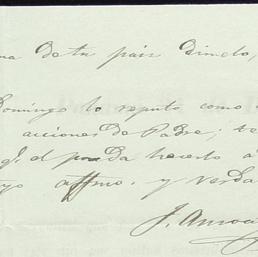 na de tu pais Dimelo,
Domingo lo reputo como
acciones de Padre; te
q.e el pueda hacerlo á
yo affmo. y verda
J. Amoa